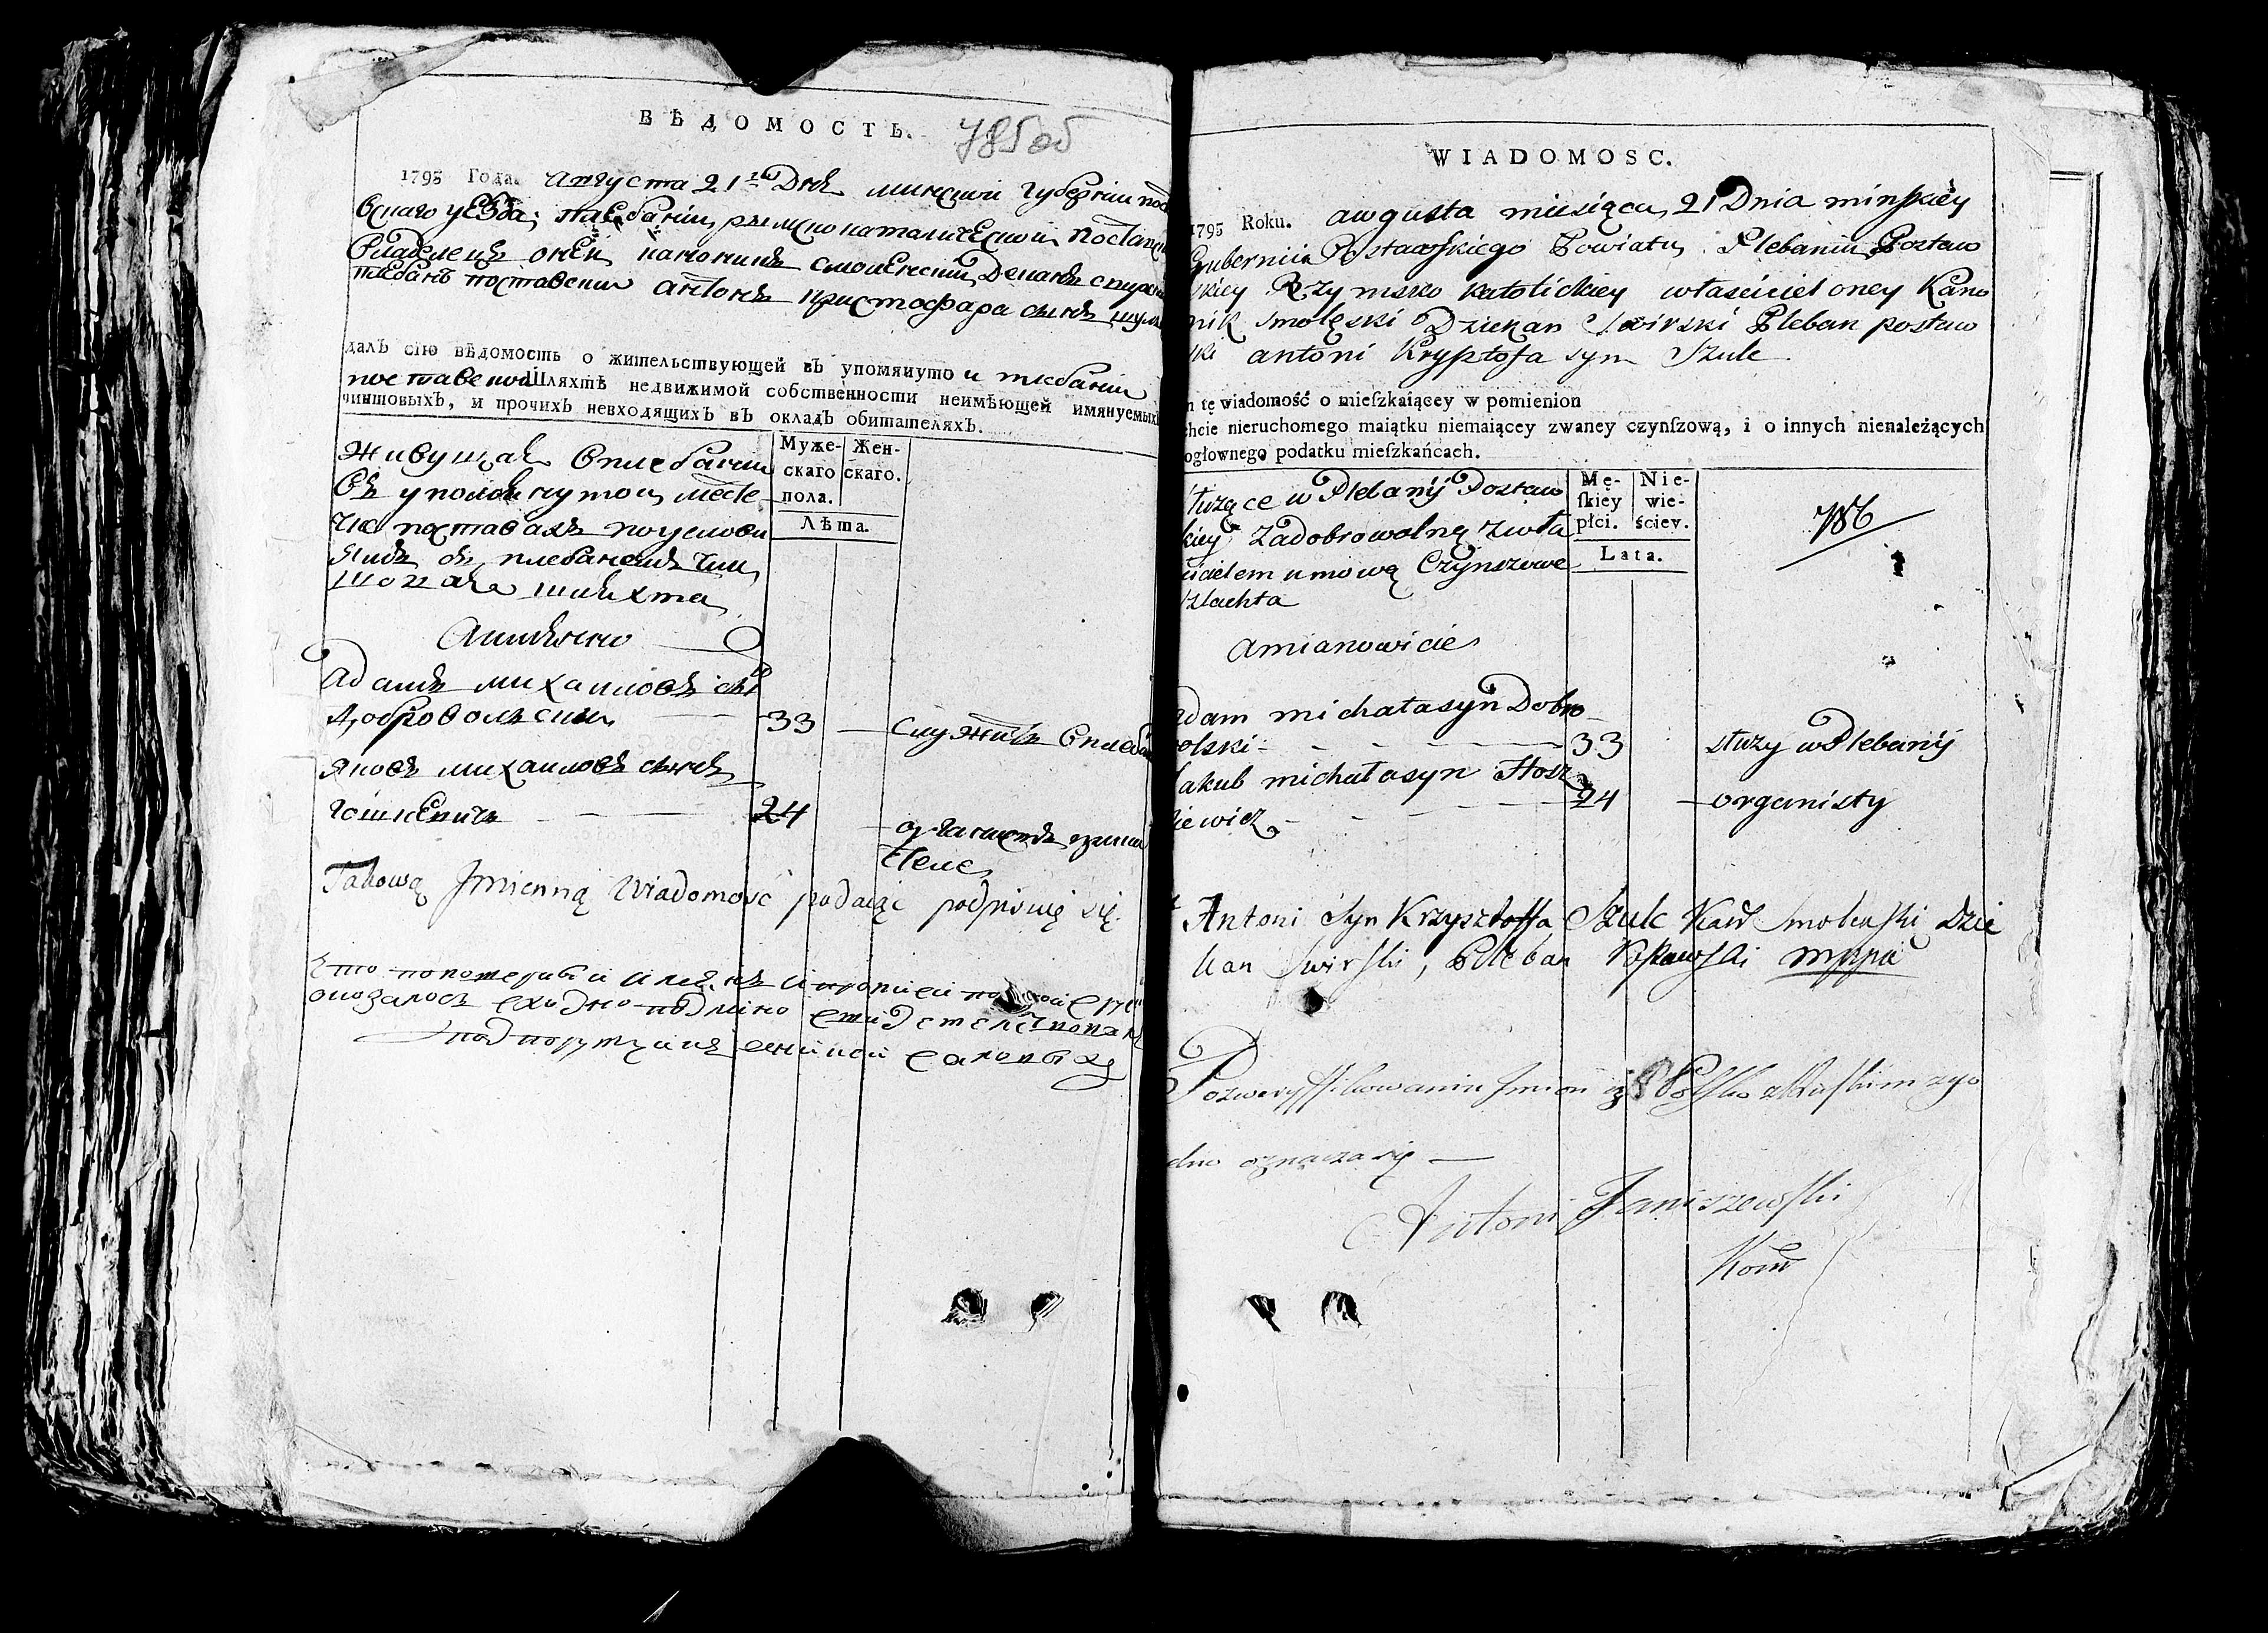 ВѢДОМОСТЬ.
785 об
1795 Года. Августа 21го Дня минской губернии пос
вскаго уезда; плебании римскокатолической поставск
владелецъ онеи каноникъ смоленский Деканъ свирск
плебанъ поставский антонъ кристофара сынъ шулц
далЪ сїю вѣдомость о жительствующей вЪ упомянуто и плебании
поставской Шляхтѣ недвижимой собственности неимѣющей имянуемыхЪ
чиншовыхЪ, и прочихЪ невходящихЪ вЪ окладЪ обитателяхЪ.
Муже-
скаго
пола.
Жен-
скаго.
Лѣта.
Живущая вплебании
въ упомянутой месте
чке поставахъ поусловию
съ плебаномъ чин
шовая шляхта
Аимянно
адамъ михаиловъ сынъ
Добровольский 33 служитъ вплебан
яковъ михаиловъ сынъ
гошкевичъ 24
органистъ
Takową Jmienną Wiadomość podaiąc podpisuię się.
оказалось сходно
подпорутчикъ
WIADOMOSC.
1795 Roku. augusta miesiąca 21 Dnia minskiey
Gubernii Postawskiego Powiatu Plebanii Postaw
skiey Rzymsko katolickiey właściciel oney Kano
nik Smoleski Dziekan Swirski Pleban postaw
ski antoni Krysztofa syn Szulc
m tę wiadomość o mieſzkaiącey w pomienion
chcie nieruchomego maiątku niemaiącey zwaney czynſzową, i o innych nienależących
ogłownego podatku mieſzkańcach.
Mę-
ſkiey
płci.
Nie-
wie-
ściey.
Lata.
786
służące w Plebanÿ Postaw
skiey Zadobrowolną zwła
scicielem umową Czynszowe
szlachta
amianowicie
adam michała syn Dobro
wolski 33 służy w Plebanÿ
Jakub michała syn Hosz
kiewicz 24 organisty
Antoni Syn Krzysztoffa Szulc Kan Smoleński Dzie
kan Swirski, Pleban Postawski mppa
Pozweryffikowaniu Jmion iż z Polsko a Ruskim zgo
dno oznacza się
Antoni Janiszewski
Kom